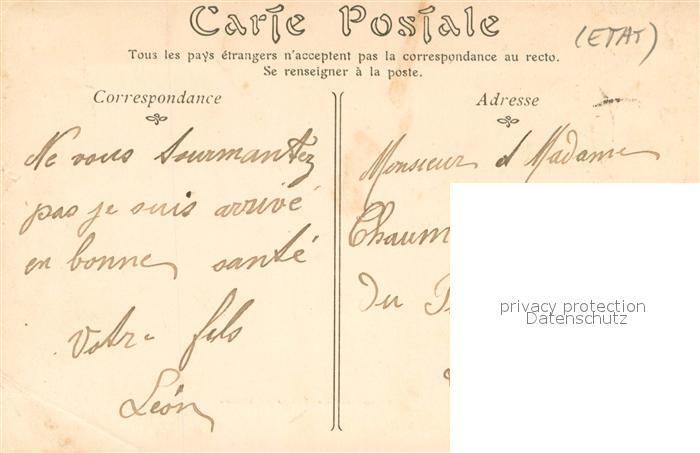 Carte Postale
(ETAT)
Tous les pays étrangers n'acceptent pas la correspondance au recto.
Se renseigner à la poste.
Correspondance
Ne vous tourmantez
pas je suis arrivé
en bonne santé
Votre fils
Léon
Adresse
Monsieur et Madame
Chaum
du
privacy protection
Datenschutz